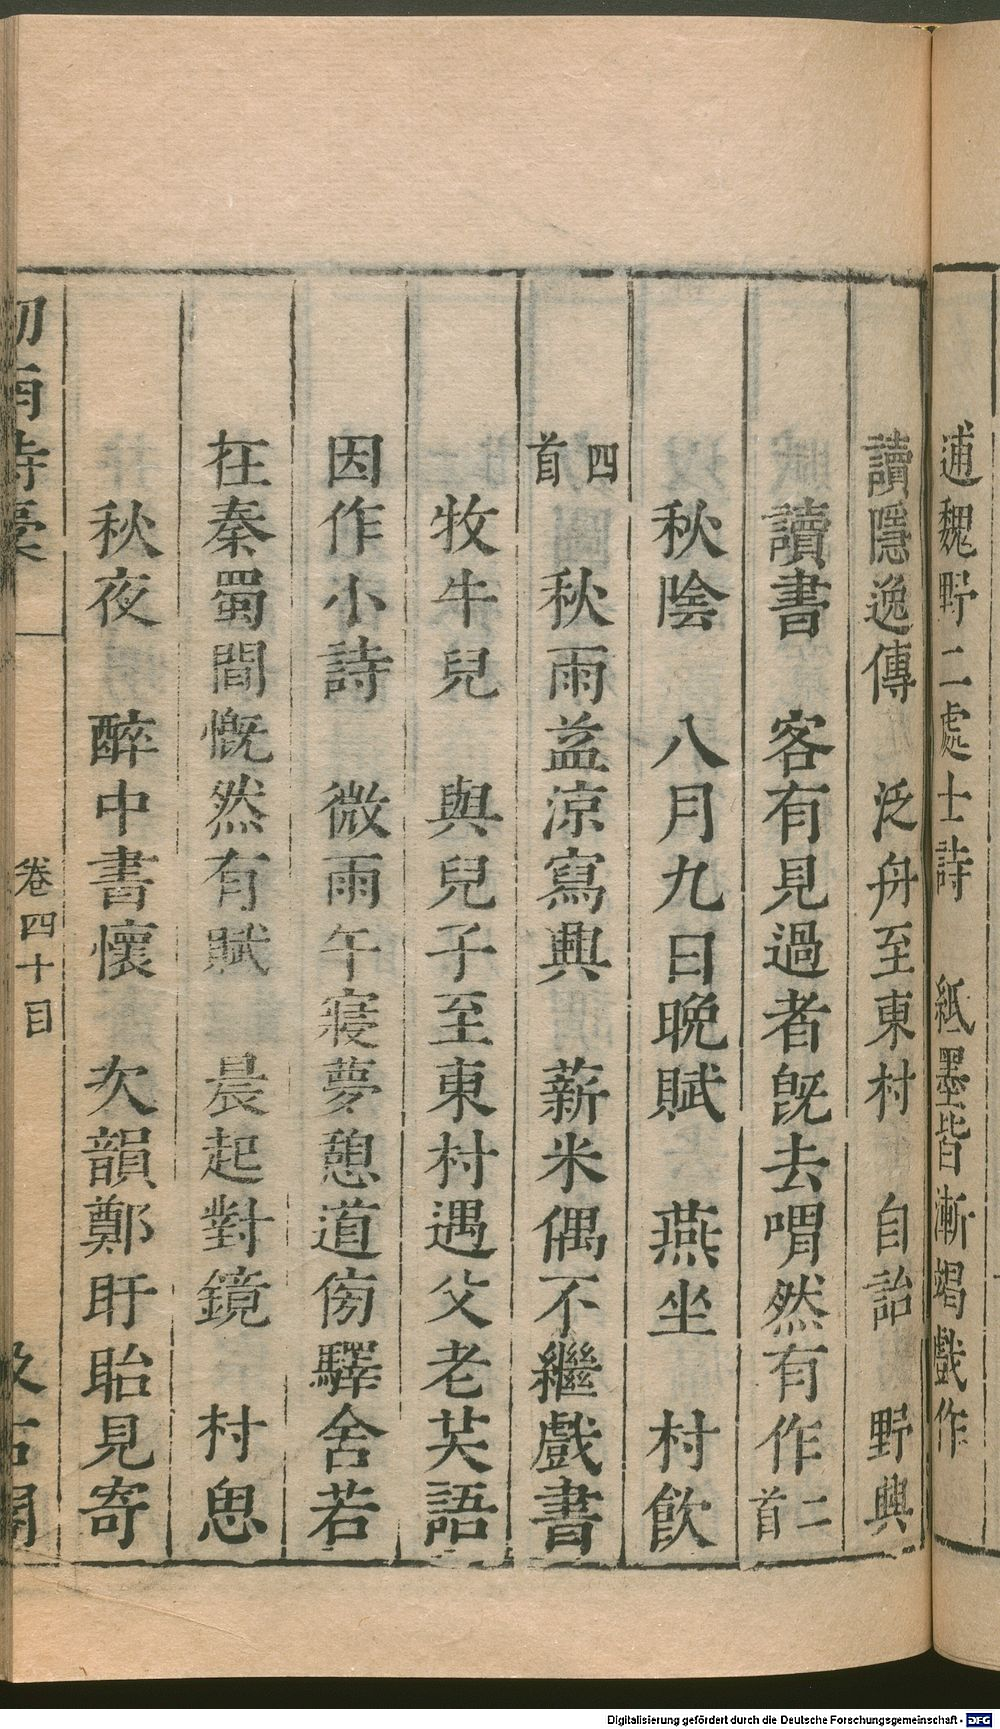 逋魏野二處士詩　紙墨皆漸竭戲作
讀隱逸傳　泛舟至東村　自詒　野興
讀書　客有見過者旣去喟然有作二首
秋陰　八月九日晚賦　燕坐　村飲
四首　秋雨益涼寫興　薪米偶不繼戲書
牧牛兒　與兒子至東村遇父老笑語
因作小詩　微雨午寢夢憩道傍驛舍若
在秦蜀間慨然有賦　晨起對鏡　村思
秋夜　醉中書懷　次韻鄭盱眙見寄
劒南詩稾　卷四十目　汲古閣
Digitalisierung gefördert durch die Deutsche Forschungsgemeinschaft - DFG